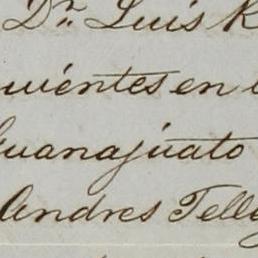 Dn. Luis
uientes en
uanajuato
Andres Tell